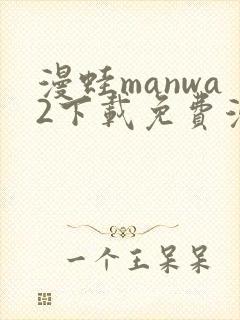 漫蛙manwa
2下載免費
一个王呆呆